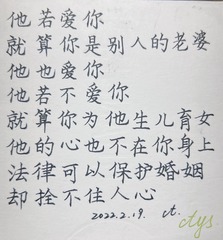 他若爱你
就算你是别人的老婆
他也爱你
他若不爱你
就算你为他生儿育女
他的心也不在你身上
法律可以保护婚姻
却拴不住人心
2022.2.19. ct.
ctys